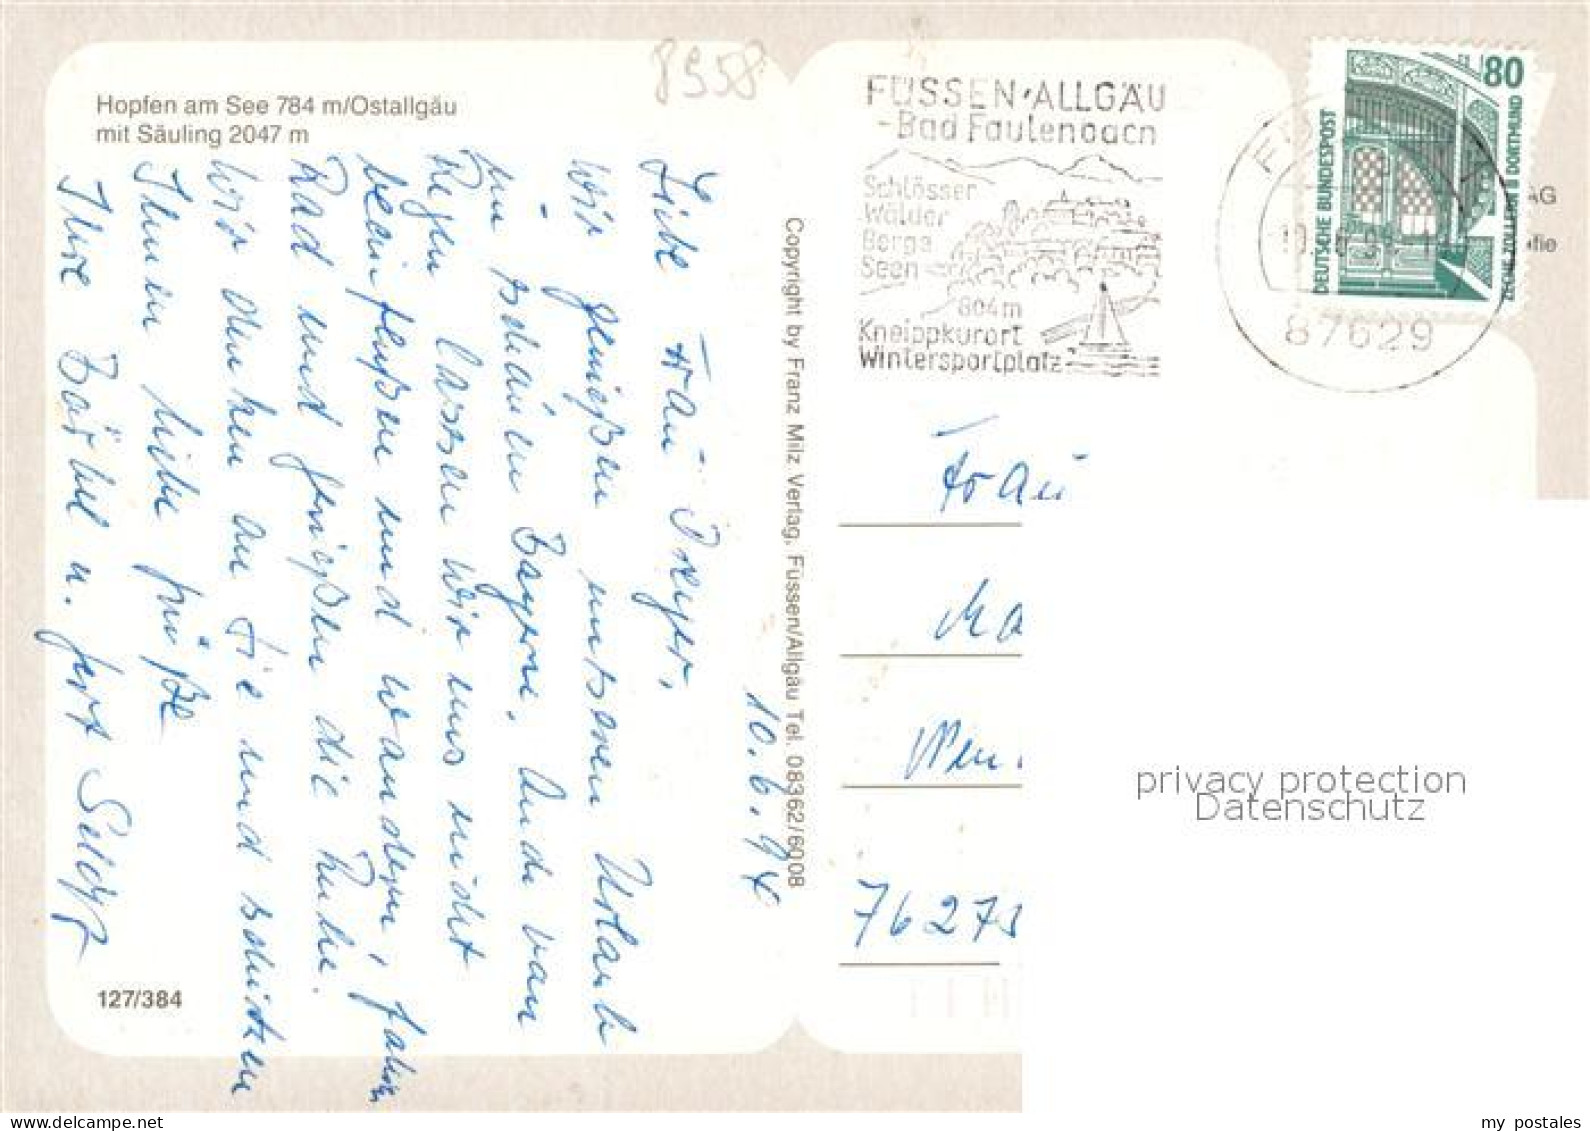 8958
Hopfen am See 784 m/Ostallgäu
mit Säuling 2047 m
10.6.94
Liebe Frau Dreyer,
wir genießen unseren Urlaub
im schönen Bayern. Auch vom
Regen lassen wir uns nicht
beeinflußen und wandern, fahren
Rad und genießen die Ruhe.
Wir denken an Sie und schicken
Ihnen liebe Grüße
Ihre Bärbel u. Gert
127/384
Copyright by Franz Milz Verlag, Füssen/Allgäu Tel. 08362/6008
FÜSSEN·ALLGÄU
-Bad Faulenbach
Schlösser
Wälder
Berge
Seen
804m
Kneippkurort
Wintersportplatz
87629
80
DEUTSCHE BUNDESPOST
ZECHE ZOLLERN II DORTMUND
AG
fie
Frau
76275
privacy protection
Datenschutz
my postales